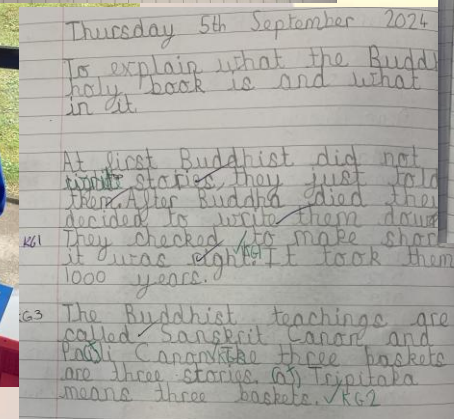 Thursday 5th September 2024
To explain what the Buddi
holy book is and what
in it
At first Buddhist did not
write stories, they just told
them. After Buddha died they
decided to write them down
KG1 They checked to make shor
it was right. KG1 It took them
1000 years.
G3 The Buddhist teachings are
called Sanskrit Canon and
Pali Canon. The three baskets
are three stories. Tripitaka
means three baskets. KG2